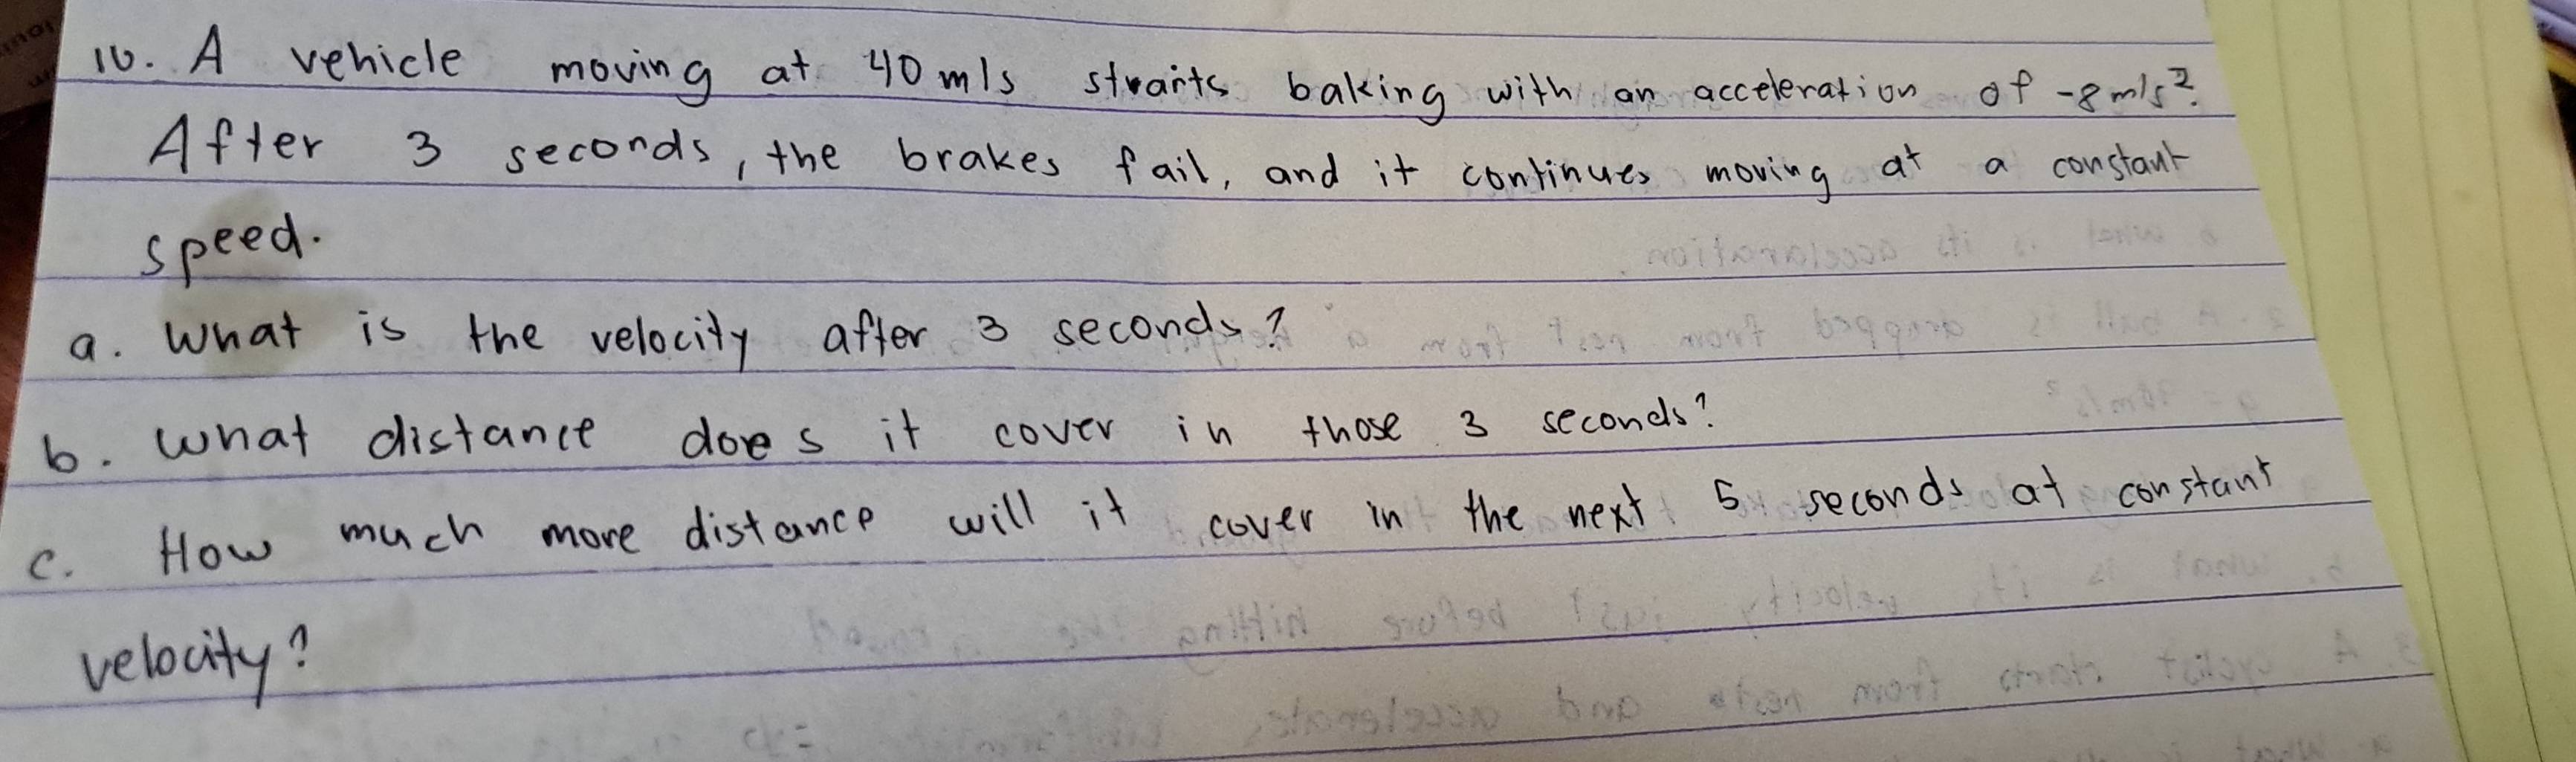 10. A vehicle moving at 40 m/s straits baking with an acceleration of -8 m/s².
After 3 seconds, the brakes fail, and it continues moving at a constant
speed.
a. What is the velocity after 3 seconds?
b. What distance does it cover in those 3 seconds?
c. How much more distance will it cover in the next 5 seconds at constant
velocity?